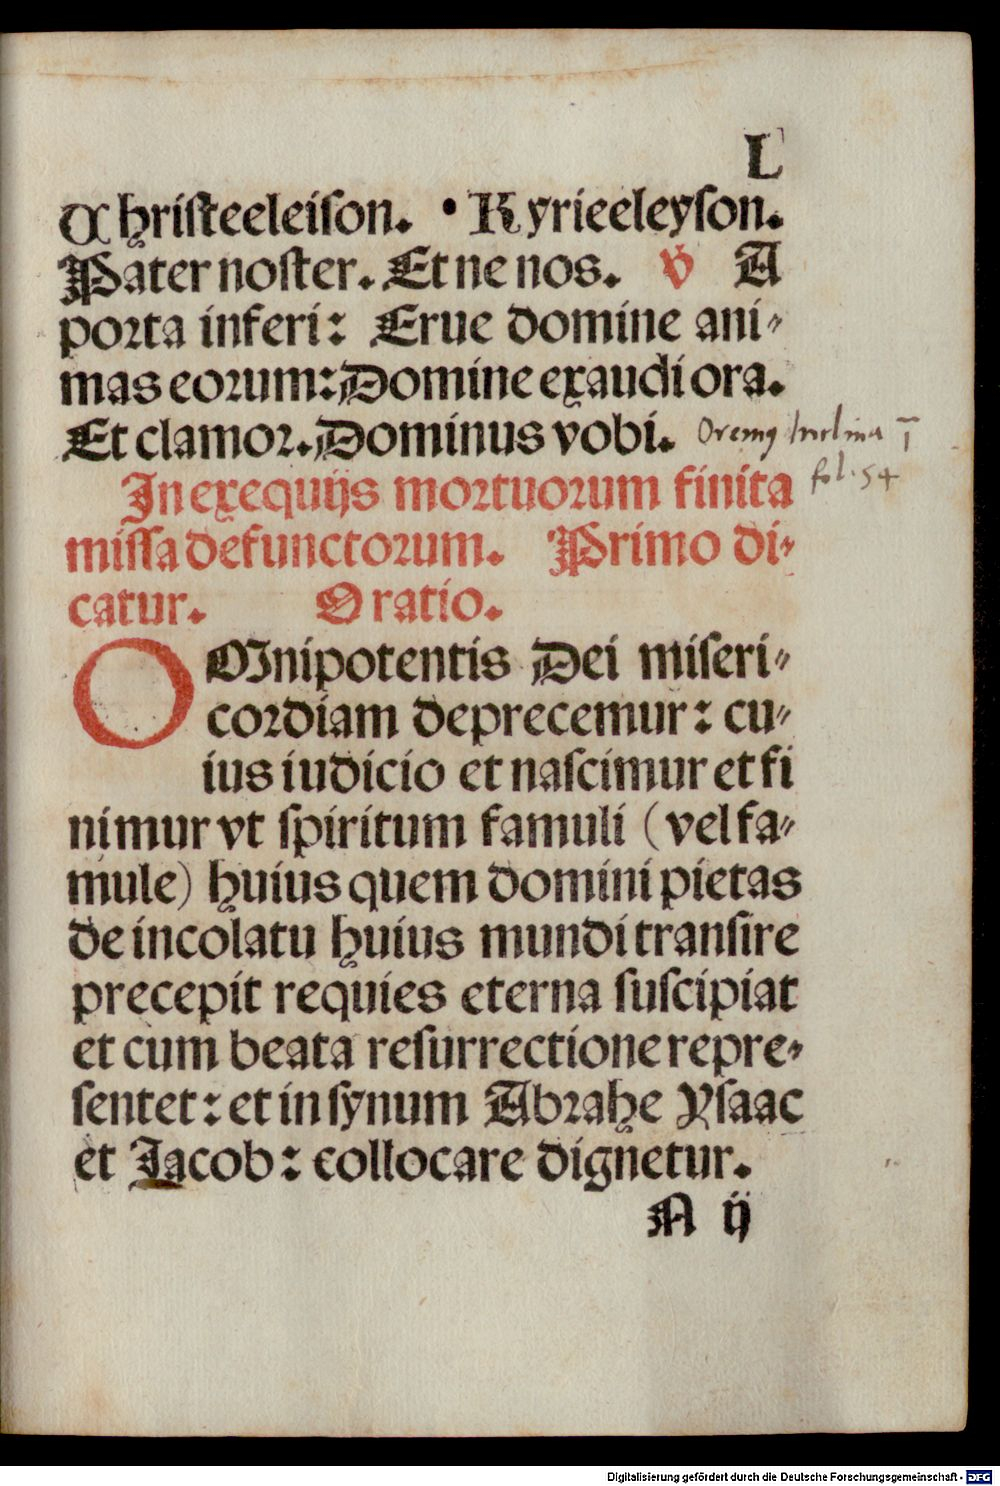 L
Christeeleison. • Kyrieeleyson.
Pater noster. Et ne nos. ℣ A
porta inferi: Erue domine ani-
mas eorum: Domine exaudi ora.
Et clamor. Dominus vobi. Oremus Inclina
fol. 54
In exequijs mortuorum finita
missa defunctorum. Primo di-
catur. Oratio.
OMnipotentis Dei miseri-
cordiam deprecemur: cu-
ius iudicio et nascimur et fi
nimur vt spiritum famuli (vel fa-
mule) huius quem domini pietas
de incolatu huius mundi transire
precepit requies eterna suscipiat
et cum beata resurrectione repre-
sentet: et in synum Abrahe Ysaac
et Jacob: collocare dignetur.
A ij
Digitalisierung gefördert durch die Deutsche Forschungsgemeinschaft - DFG